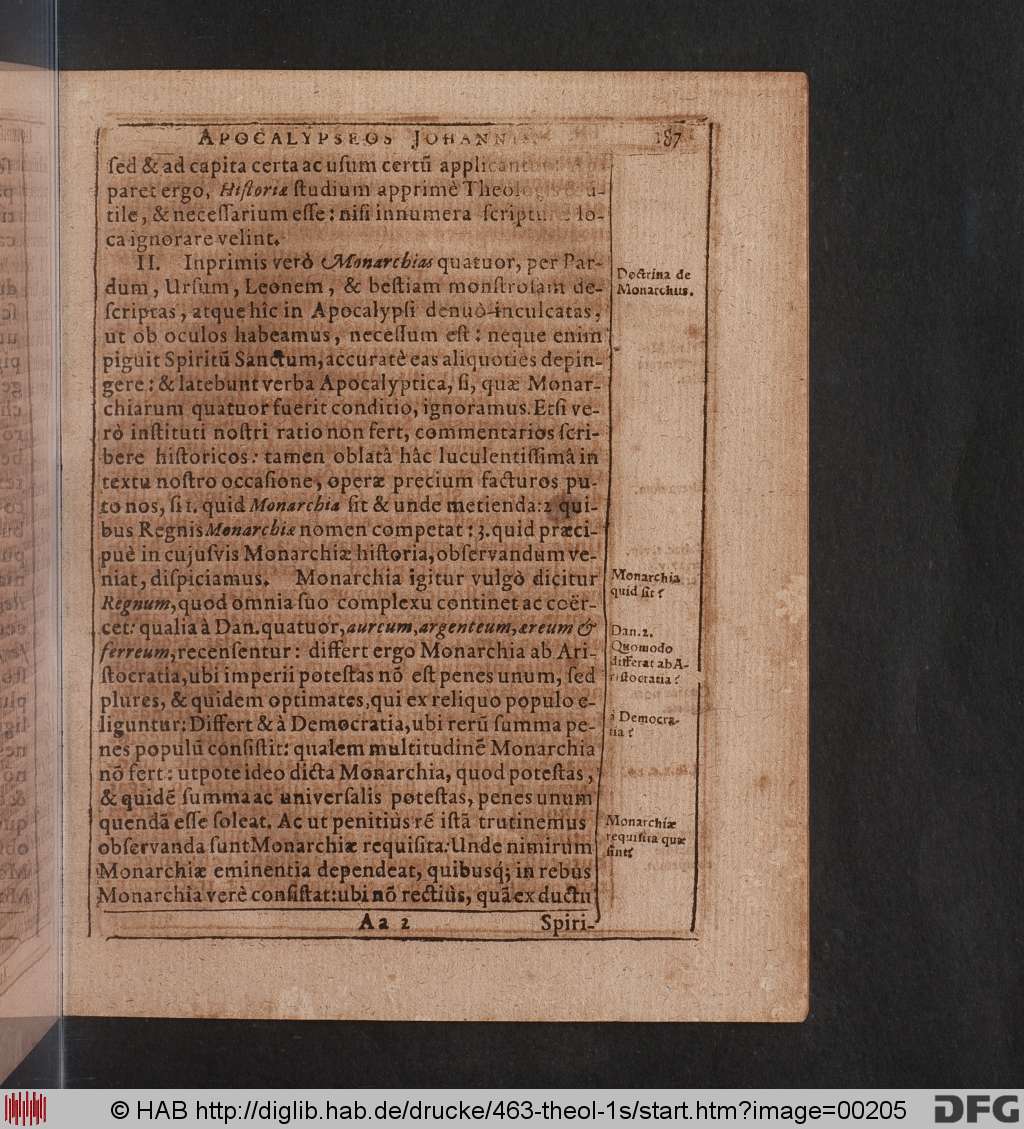 APOCALYPSEOS JOHANNIS. 187
ſed & ad capita certa ac uſum certũ applicantibus
paret ergo, Hiſtoriæ ſtudium apprimè Theologis & u-
tile, & neceſſarium eſſe: niſi innumera ſcripturæ lo-
ca ignorare velint.
II. Inprimis verò Monarchias quatuor, per Par-
dum, Urſum, Leonem, & beſtiam monſtroſam de-
ſcriptas, atque hîc in Apocalypſi denuò inculcatas,
ut ob oculos habeamus, neceſſum eſt: neque enim
piguit Spiritũ Sanctum, accuratè eas aliquoties depin-
gere: & latebunt verba Apocalyptica, ſi, quæ Monar-
chiarum quatuor fuerit conditio, ignoramus. Etſi ve-
rò inſtituti noſtri ratio non fert, commentarios ſcri-
bere hiſtoricos: tamen oblatâ hâc luculentiſſimâ in
textu noſtro occaſione, operæ precium facturos pu-
to nos, ſi 1. quid Monarchia ſit & unde metienda: 2 qui-
bus Regnis Monarchiæ nomen competat: 3. quid præci-
puè in cujuſvis Monarchiæ hiſtoria, obſervandum ve-
niat, diſpiciamus. Monarchia igitur vulgò dicitur
Regnum, quod omnia ſuo complexu continet ac coër-
cet: qualia à Dan. quatuor, aureum, argenteum, æreum &
ferreum, recenſentur: differt ergo Monarchia ab Ari-
ſtocratia, ubi imperii poteſtas nõ eſt penes unum, ſed
plures, & quidem optimates, qui ex reliquo populo e-
liguntur: Differt & à Democratia, ubi rerũ ſumma pe-
nes populũ conſiſtit: qualem multitudinẽ Monarchia
nõ fert: utpote ideo dicta Monarchia, quod poteſtas,
& quidẽ ſumma ac univerſalis poteſtas, penes unum
quendã eſſe ſoleat. Ac ut penitius rẽ iſtã trutinemus
obſervanda ſunt Monarchiæ requiſita: Unde nimirum
Monarchiæ eminentia dependeat, quibusq́; in rebus
Monarchia verè conſiſtat: ubi nõ rectiùs, quã ex ductu
Aa 2 Spiri-
Doctrina de
Monarchiis.
Monarchia
quid ſit?
Dan. 2.
Quomodo
differat ab A-
riſtocratia?
à Democra-
tia?
Monarchiæ
requiſita quæ
ſint?
© HAB http://diglib.hab.de/drucke/463-theol-1s/start.htm?image=00205
DFG